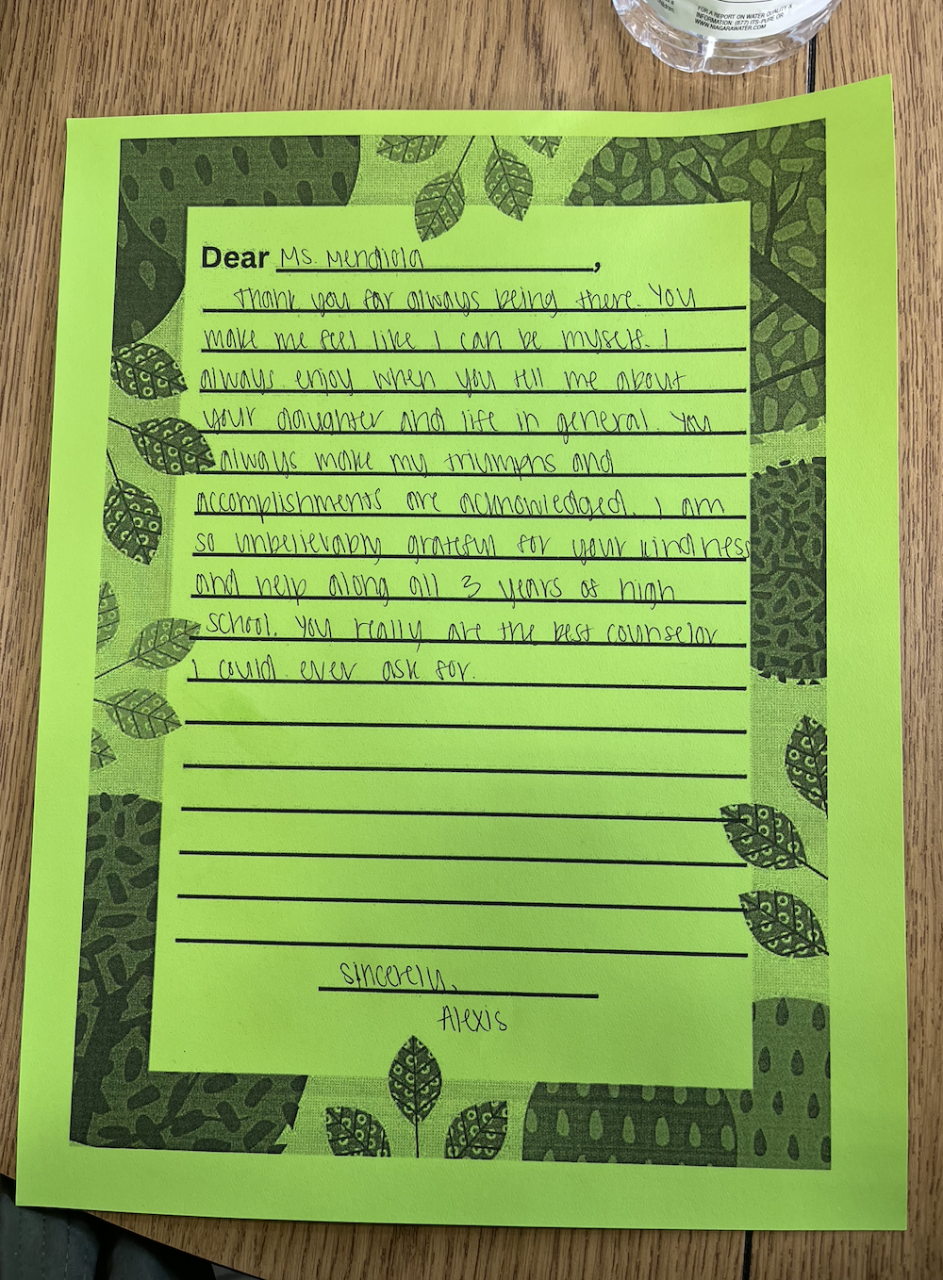 FOR A REPORT ON WATER QUALITY &
INFORMATION: (877) ITS-PURE OR
WWW.NIAGARAWATER.COM
Dear Ms. Mendiola,
Thank you for always being there. You
make me feel like I can be myself. I
always enjoy when you tell me about
your daughter and life in general. You
always make my triumphs and
accomplishments are acknowledged. I am
so unbelievably grateful for your kindness
and help along all 3 years of high
school. You really are the best counselor
I could ever ask for.
sincerely,
Alexis